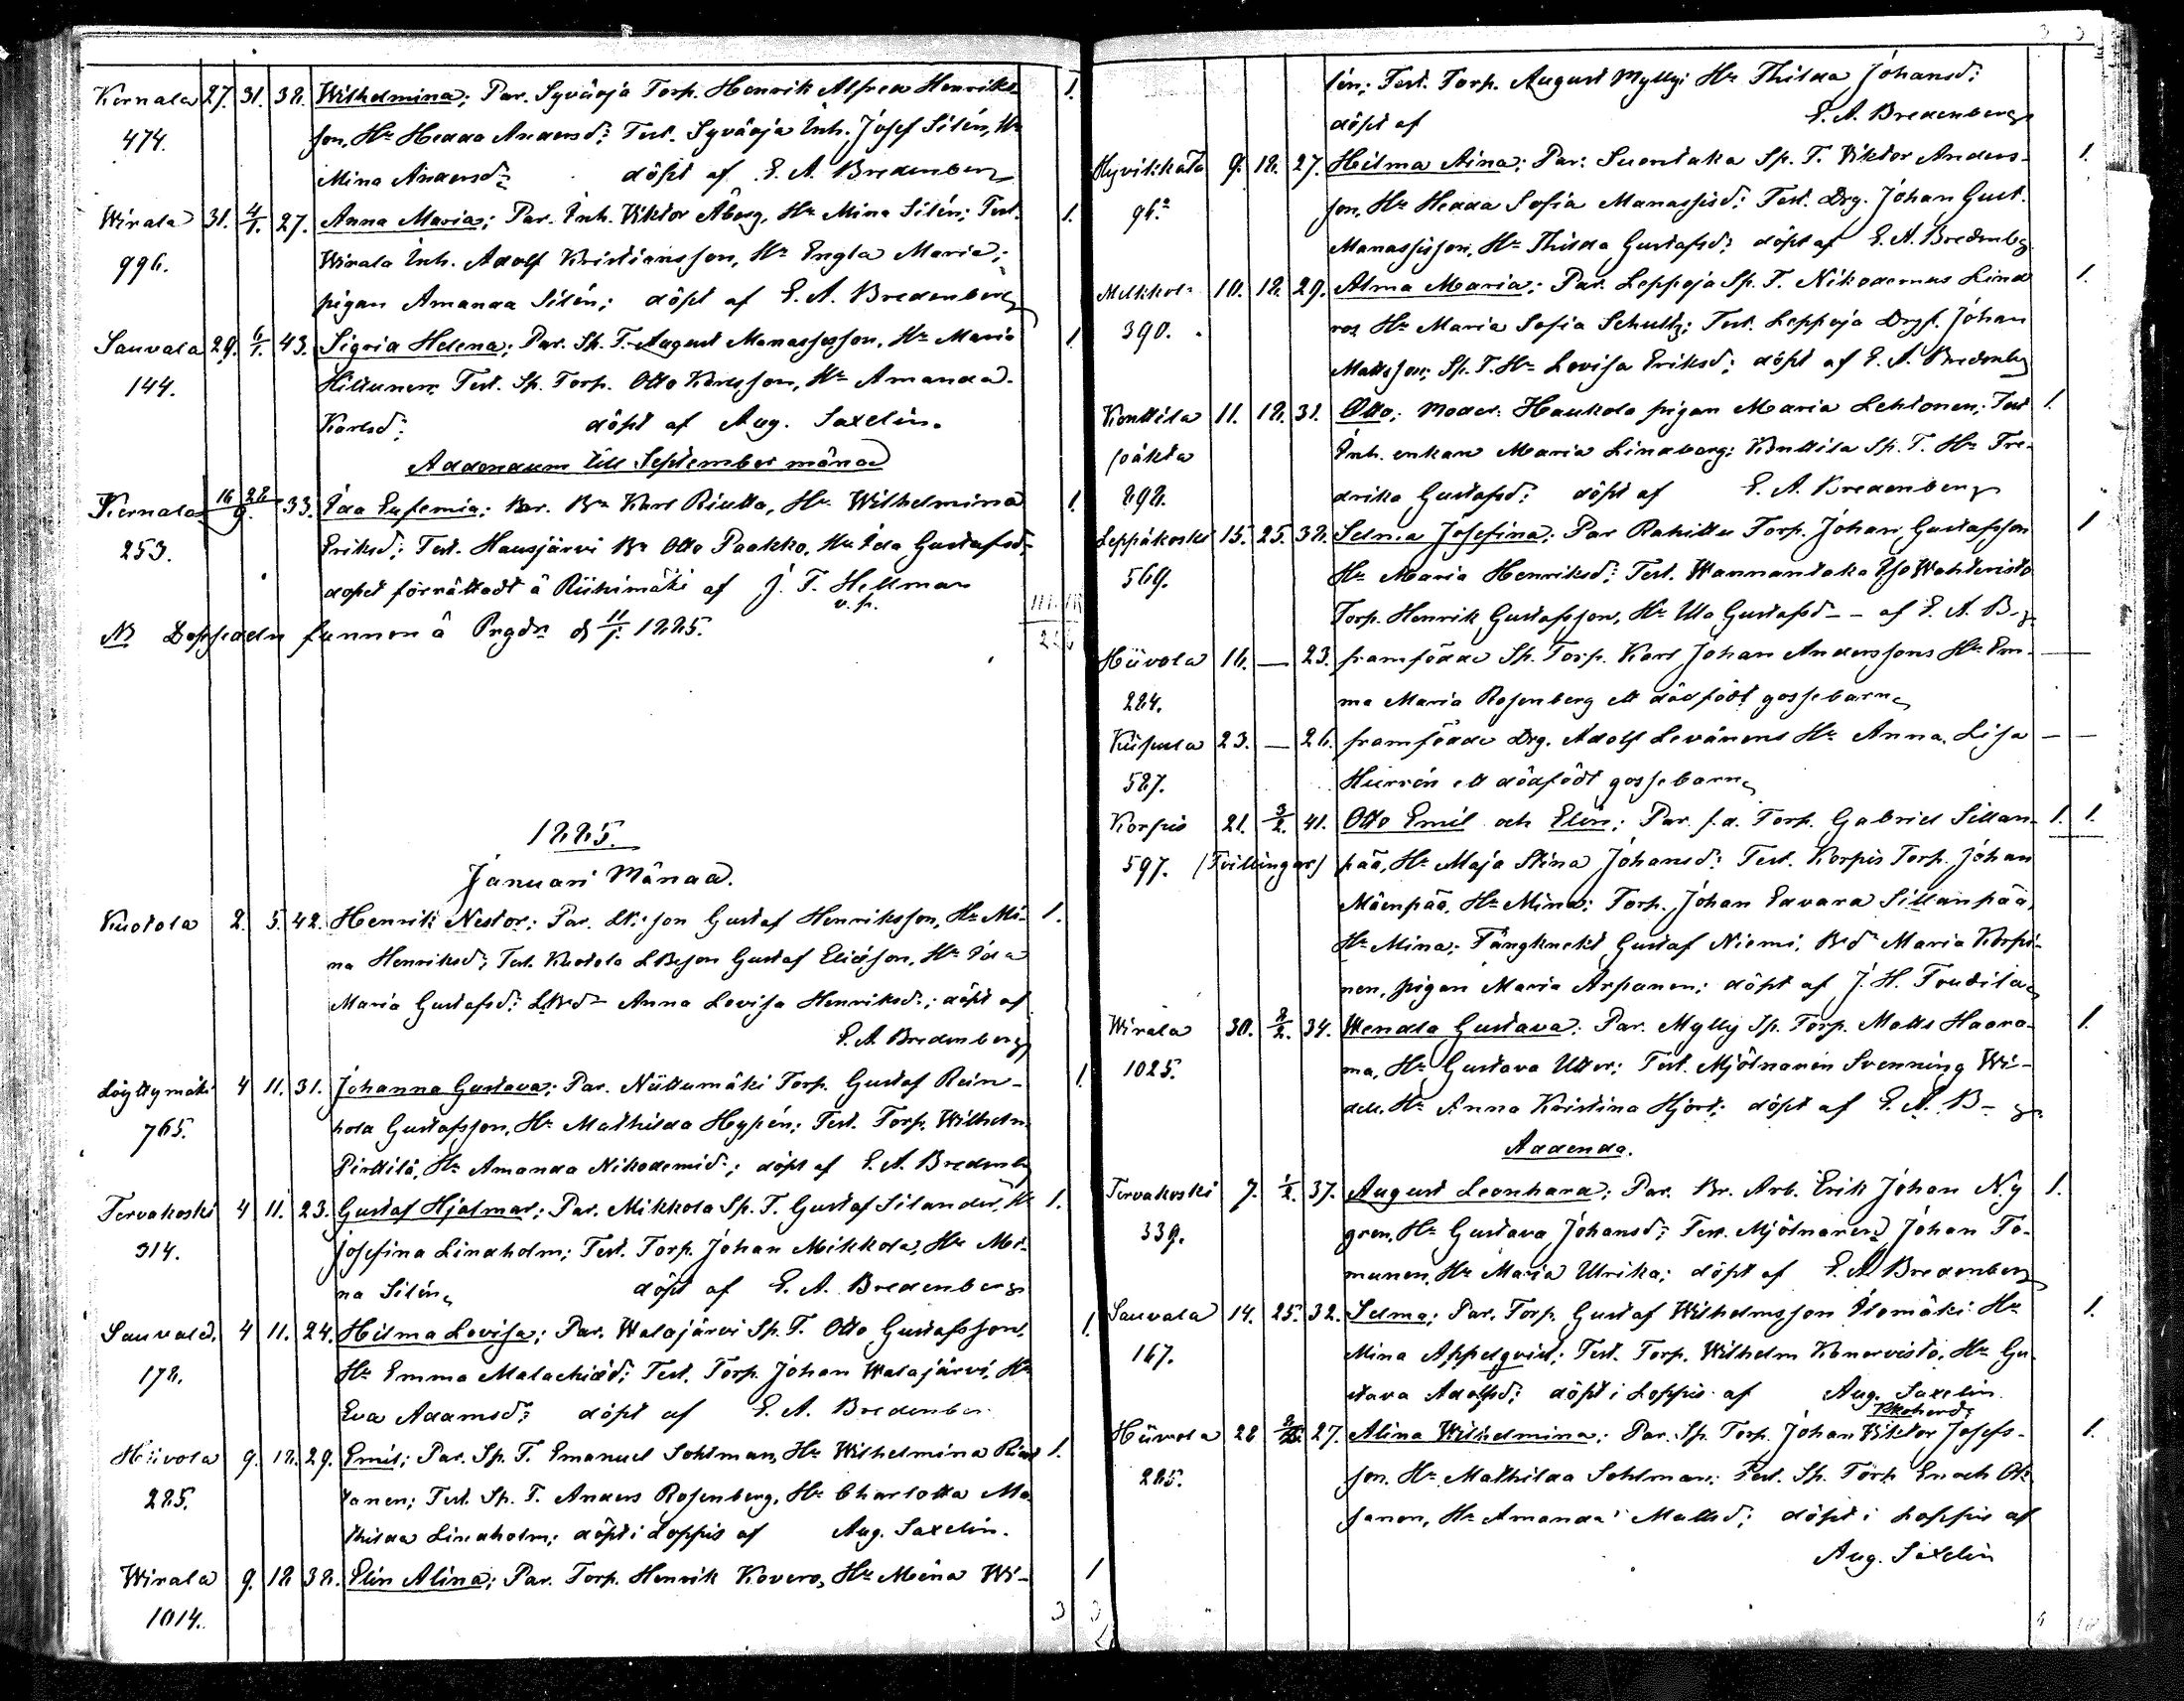 Kernala 27. 31. 38. Wilhelmina; Par. Syväoja Torp. Henrik Alfred Henriks- 1.
474. son, Hu Hedda Andersd:r Test. Syväoja Inh. Josef Silén, Hu
Mina Andersd:r döpt af E. A. Bredenberg
Wirala 31. 4/1. 27. Anna Maria; Par. Inh. Viktor Åberg, Hu Mina Silén; Test. 1.
996. Wirala Inh. Adolf Kristiansson, Hu Engla Maria;
pigan Amanda Silén; döpt af E. A. Bredenberg
Sauvala 29. 6/1. 43. Sigrid Helena; Par. Sp. T. August Manassesson, Hu Maria 1.
144. Hiltunen; Test. Sp. Torp. Otto Karlsson, Hu Amanda
Karlsd:r döpt af Aug. Saxelin.
Addendum till September månad
Kernala 16 28/9. 33. Ida Eufemia; Par. Bn Karl Riutta, Hu Wilhelmina 1.
253. Eriksd:r Test. Hausjärvi Bn Otto Paakko, Hu Ida Gustafsd:r
dopet förrättadt å Riihimäki af J. T. Hellman
v. p.
NB Doppsedeln funnen å Prgdn d 11/1. 1885.
1885.
Januari Månad.
Kuotola 2. 5. 42. Henrik Nestor; Par. Lbson Gustaf Henriksson, Hu Mi- 1.
na Henriksd:r Test. Kuotola Lbson Gustaf Eliasson, Hu Ida
Maria Gustafsd:r Lbd:r Anna Lovisa Henriksd:r; döpt af
E. A. Bredenberg
Löyttymäki 4 11. 31. Johanna Gustava; Par. Niittumäki Torp. Gustaf Rein- 1.
765. hold Gustafsson, Hu Mathilda Hypén; Test. Torp. Wilhelm
Pirttilä, Hu Amanda Nikodemid:r; döpt af E. A. Bredenbg
Tervakoski 4 11. 23. Gustaf Hjalmar; Par. Mikkola Sp. T. Gustaf Silander, Hu 1.
314. Josefina Lindholm; Test. Torp. Johan Mikkola, Hu Mi-
na Silén, döpt af E. A. Bredenberg
Sauvala. 4 11. 24. Hilma Lovisa; Par. Walajärvi Sp. T. Otto Gustafsson, 1.
178. Hu Emma Malachiasd:r Test. Torp. Johan Walajärvi, Hu
Eva Adamsd:r döpt af E. A. Bredenber
Hiivola 9. 18. 29. Emil; Par. Sp. T. Emanuel Sohlman, Hu Wilhelmina 1.
285. tanen; Test. Sp. T. Anders Rosenberg, Hu Charlotta Ma-
thilda Lindholm; döpt i Loppis af Aug. Saxelin.
Wirala 9. 18 38. Elin Alina; Par. Torp. Henrik Kovero, Hu Mina Wi- 1
1014.
3
lén; Test. Torp. August Mylly; Hu Thilda Johansd:r
döpt af E. A. Bredenberg
Hyvikkälä 9. 18. 27. Hilma Aina; Par. Suontaka Sp. T. Viktor Anders- 1.
son, Hu Hedda Sofia Manassisd:r Test. Drg. Johan Gust.
Manassisson, Hu Thilda Gustafsd:r döpt af E. A. Bredenbg
10. 18. 29. Alma Maria; Par. Leppoja Sp. T. Nikodemus Lind 1.
390. ros, Hu Maria Sofia Schultz; Test. Leppoja Drgs. Johan
Mattsson, Sp. T. Hu Lovisa Eriksd:r döpt af E. A. Bredenbg
Konttila 11. 18. 31. Otto; moder: Haukola pigan Maria Lehtonen; Test 1.
Inh. enkan Maria Lindberg; Konttila Sp. T. Hu Fre-
898. drika Gustafsd:r döpt af E. A. Bredenberg
Leppäkoski 15. 25. 38. Selma Josefina; Par. Rahittu Torp. Johan Gustafsson 1
569. Hu Maria Henriksd:r Test. Wannantaka Wahteristo
Torp. Henrik Gustafsson, Hu Ulla Gustafsd – – af E. A. B–g.
Hiivola 16. — 23. framfödde Sp. Torp. Karl Johan Anderssons Hu Em- — —
284. ma Maria Rosenberg ett dödfödt gossebarn
23. — 26. framfödde Drg. Adolf Levänens Hu Anna Lisa — —
587. Hurrén ett dödfödt gossebarn
Korpis 21. 3/2. 41. Otto Emil och Elin; Par. f.d. Torp. Gabriel Sillan- 1. 1.
597. (Tvillingar) pää, Hu Maja Stina Johansd:r Test. Korpis Torp. Johan
Mäenpää, Hu Mina; Torp. Johan Savara Sillanpää,
Hu Mina; Fångknekt Gustaf Niemi, Bd:r Maria Korpi-
nen, pigan Maria Arpanen; döpt af J. H. Trudila
Wirala 30. 8/2. 34. Wendla Gustava; Par. Mylly Sp. Torp. Matts Haara- 1.
1025. ma, Hu Gustava Utter; Test. Mjölnaren Svenning Wi-
dell, Hu Anna Kristina Hjort; döpt af E. A. B – g
Addenda.
Tervakoski 7. 1/2. 37. August Leonhard; Par. Br. Arb. Erik Johan Ny 1.
339. gren, Hu Gustava Johansd:r Test. Mjölnaren Johan To-
munen, Hu Maria Ulrika; döpt af E. A. Bredenberg
Sauvala 14. 25. 32. Selma; Par. Torp. Gustaf Wilhelmsson Ilomäki Hu 1.
167. Mina Appelqvist; Test. Torp. Wilhelm Kanervisto, Hu Gu-
stava Adolfsd:r döpt i Loppis af Aug. Saxelin
Hiivola 28 27. Alina Wilhelmina; Par. Sp. Torp. Johan Viktor Josefs- 1.
285. son, Hu Mathilda Sohlman; Test. Sp. Torp. Enoch
sanen, Hu Amanda Mattsd:r döpt i Loppis af
Aug. Saxelin